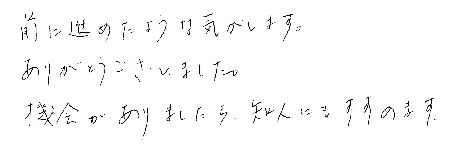 前に進めたような気がします。
ありがとうございました。
機会がありましたら、知人にもすすめます